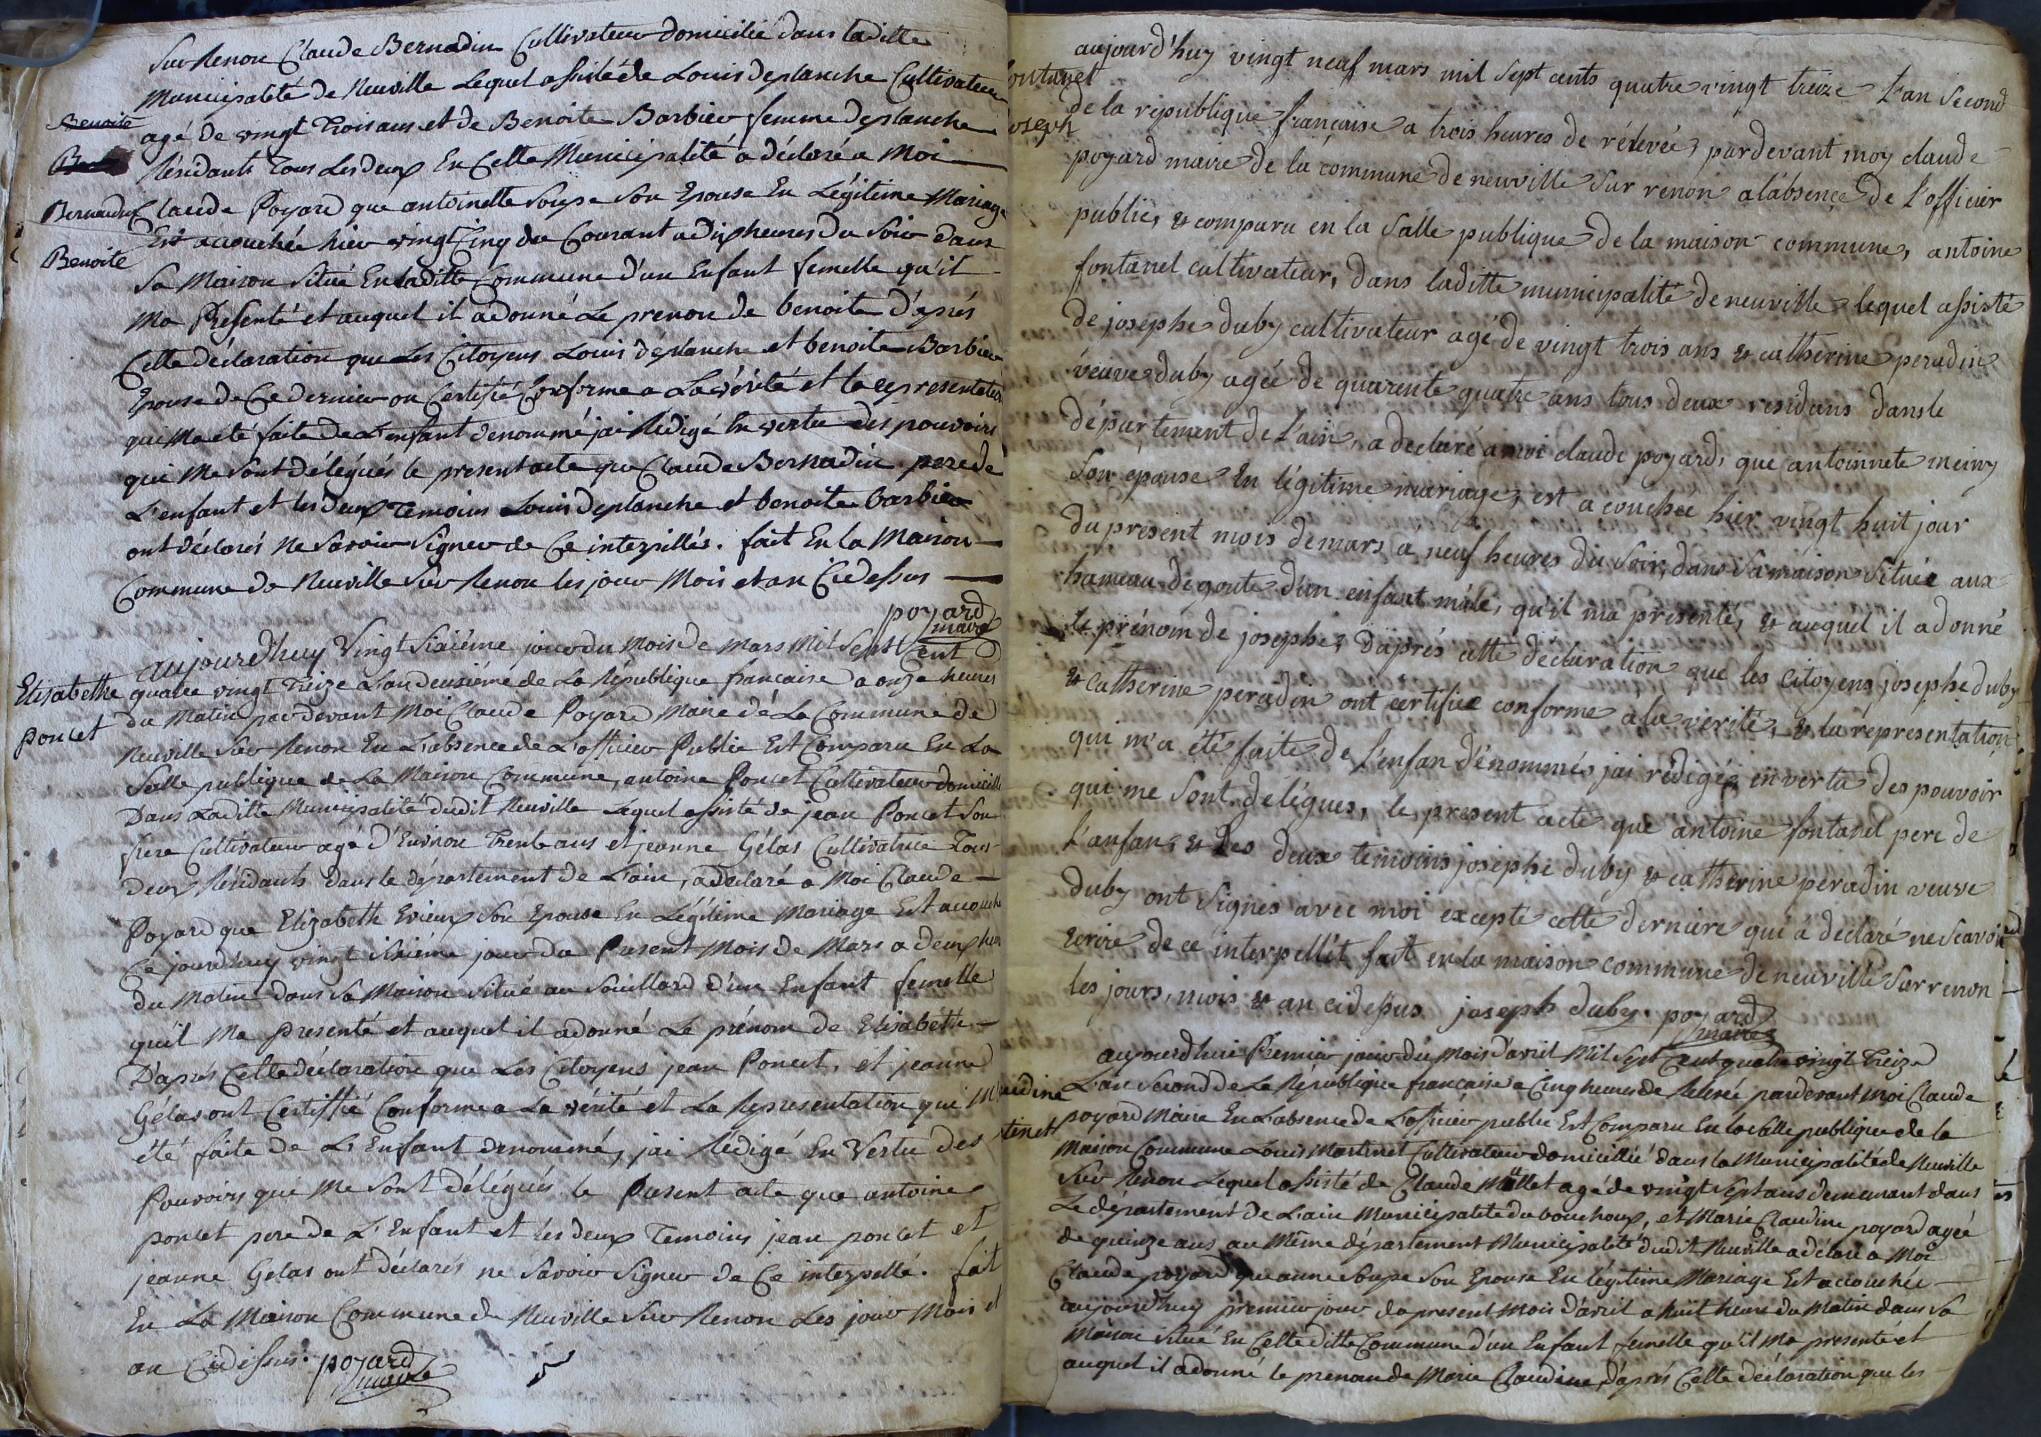 Sur Renon Claude Bernadin Cultivateur domicilié dans laditte
Municipalité de Neuville Lequel assisté de Louis deplanche Cultivateur
agé de vingt Trois ans et de Benoite Barbier femme deplanche
Résidants Tous Les deux En Cette Municipalité a déclaré a Moi
Benoite
Bernadin
Benoite
Claude Poyard que antoinette Soupe Son Epouse En Légitime Mariage
Est accouchée hier vingt Cinq du Courant a dix heures du Soir dans
Sa Maison Situé En laditte Commune d'un Enfant femelle qu'il
Ma Presenté et auquel il a donné Le prenom de benoite D'aprés
Cette déclaration que Les Citoyens Louis déplanche et benoite Barbier
Epouse de Ce dernier on Certifié Conforme a La vérité et la representation
qui Ma eté faite de L'enfant denommé jai Rédigé En vertu des pouvoirs
qui Me Sont délégués le present acte que Claude Bernadin pere de
L'enfant et les deux Temoins Louis Deplanche et benoite barbier
ont déclarés Ne Savoir Signer de Ce interpillés. fait En la Maison
Commune de Neuville Sur Renon les jour Mois et an Cidessus
poyard
maire
Elisabethe
poncet
aujourd'huy Vingt Sixiéme jour du Mois de Mars Mil Sept Cent
quatre vingt Treize L'an deuxiéme de La République francaise a onze heures
du Matin par devant Moi Claude Poyard Maire de La Commune de
Neuville Sur Renon En L'absence de L'officier Public Est Comparu En La
Salle publique de La Maison Commune, antoine Poncet Cultivateur domicillié
Dans Laditte Municipalité dudit Neuville Lequel assisté de jean Poncet Son
frere Cultivateur agé d'Environ Trente ans et jeanne Gélas Cultivatrice Tous
deux Résidants dans le département de L'ain, a déclaré a Moi Claude
Poyard que Elizabeth Evieux Son Epouse En Légitime Mariage Est accouché
Ce jourd'huy vingt Sixiéme jour du Present Mois de Mars a deux heures
du Matin dans Sa Maison Situé au Souillard d'un Enfant femelle
qu'il Ma presenté et auquel il a donné Le prénom de Elisabethe
D'aprés Cette déclaration que Les Citoyens jean Poncet, et jeanne
Gélas ont Certiffié Conforme a La vérité et La Representation qui M'a
été faite de L'Enfant denommé, jai Rédigé En Vertu des
Pouvoirs qui Me Sont délégués le Present acte que antoine
poncet pere de L'Enfant et les deux Temoins jean poncet et
jeanne Gelas ont déclarés ne Savoir Signer de Ce interpellé. fait
En La Maison Commune de Neuville Sur Renon Les jour Mois et
an Cidessus. poyard
maire
fontanel
joseph
aujourd'huy vingt neuf mars mil sept cents quatre vingt treize L'an Second
de la république française a trois heures de rélevée, pardevant moy claude
poyard maire de la commune de neuville Sur renon a l'absence de l'officier
public, & comparu en la Salle publique de la maison commune, antoine
fontanel cultivateur, dans laditte municipalité de neuville lequel assisté
de josephe duby cultivateur agé de vingt trois ans & catherine peradin
véuve duby agée de quarente quatre ans tous deux residans dans le
département de L'ain, a declaré a moi claude poyard, que antoinnete meiny
Son épouse En légitime mariage, est acouchée hier vingt huit jour
du présent mois de mars a neuf heures du Soir, dans Sa maison Située aux
hameau dégoute d'un enfant mâle, qu'il ma presenté, & auquel il a donné
le prénom de josephe, d'aprés cette déclaration que les citoyens josephe duby
& catherine peradin ont certifiée conforme a la verité, & la répresentation
qui m'a été faite de l'enfan dénommés jai rédigée en vertu des pouvoir
qui me Sont délégues, le present acte que antoine fontanel pere de
l'anfan, & Les deux temoins josephe duby & catherine peradin veuve
duby ont Signés avec moi excepté cette derniere qui a declaré ne Scavoir
Ecrire de ce interpellét fait en la maison commune de neuville Sur renon
les jours, mois & an cidessus joseph duby. poyard
maire
audine
tinet
aujourd'hui Premier jour du Mois d'avril Mil Sept Cent quatre vingt Treize
L'an Second de La République francaise a Cinq heures de Relevée pardevant Moi Claude
poyard Maire En L'absence de L'officier public Est Comparu En la Salle publique de la
Maison Commune Louis Martinet Cultivateur domicillié dans la Municipalité de Neuville
Sur Renon Lequel assisté de Claude Millet agé de vingt Sept ans demeurant dans
Le département de L'ain Municipalité du bouchoux, et Marie Claudine poyard agée
de quinze ans au Même département Municipalité dudit Neuville a déclaré a Moi
Claude poyard que anne Soupe Son Epouse En légitime Mariage Est accouchée
aujourd'huy premier jour du present Mois d'avril a huit heure du Matin dans Sa
Maison Situé En Cette ditte Commune d'un Enfant femelle qu'il Ma presenté et
auquel il a donné le prenom de Marie Claudine, d'aprés Cette déclaration que les